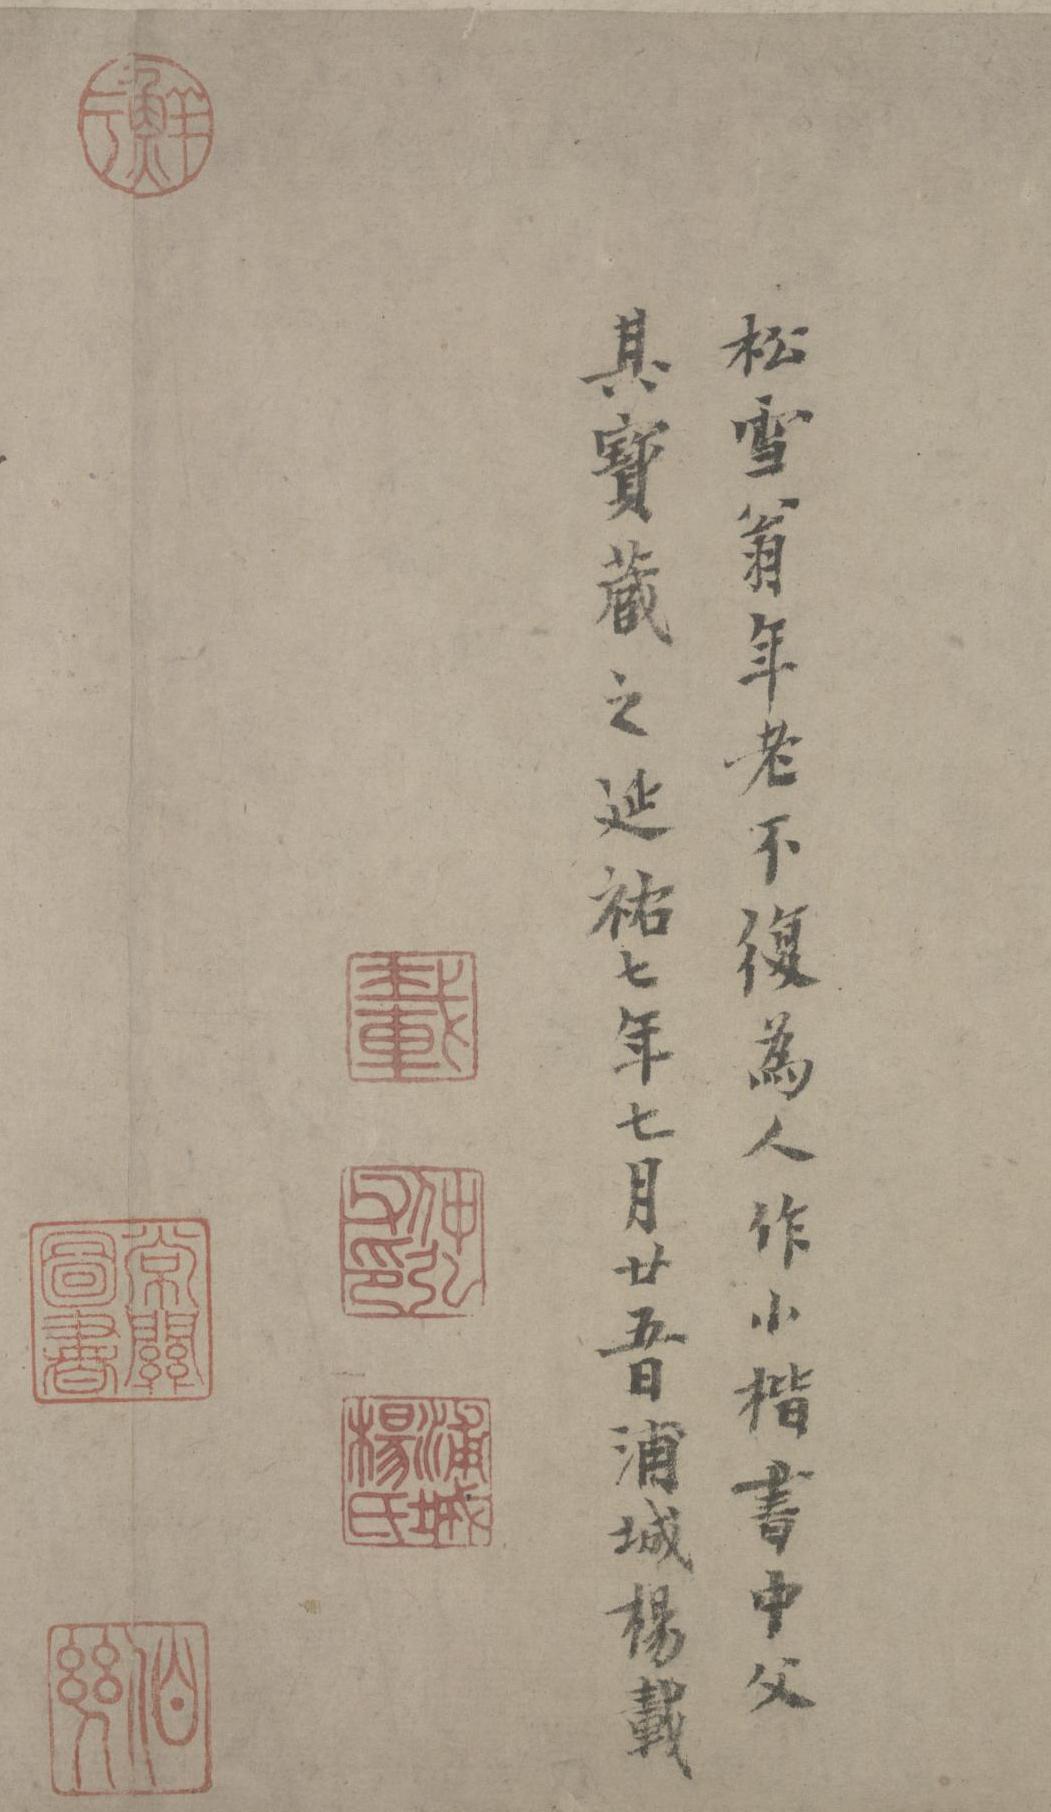 松雪翁年老不復為人作小楷書中父
其寶藏之延祐七年七月廿五日浦城楊載
載
仲弘父印
浦城楊氏
鮮
圖書